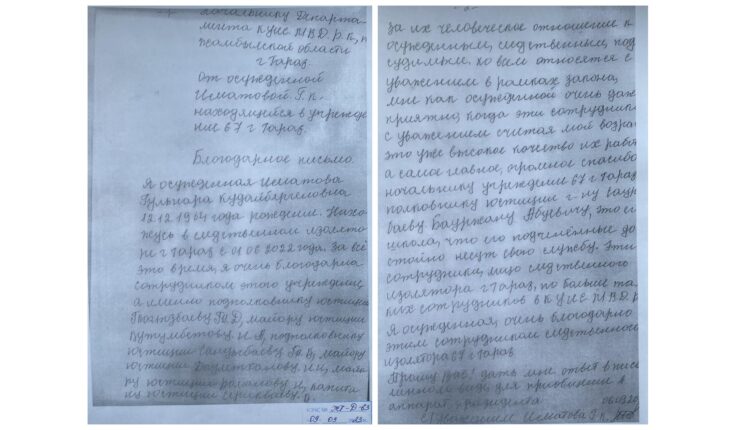 начальнику Департа-
мента КУИС МВД. Р.К., п
Жамбылской области
г Тараз.
От осужденной
Исматовой. Г. К.
находящейся в учрежде
ние 67 г Тараз.
Благодарное письмо.
Я осужденная Исматова
Гульнара Кудайбергеновна
12.12 1964 года рождения. Нахо-
жусь в следственном изолято-
ре г Тараз с 2022 года. За всё
это время, я очень благодарна
сотрудником этого учреждение,
а именно подполковнику юстиции
майору юстиции
Кутумбетову. подполковнику
юстиции майору
юстиции майо-
ру юстиции капита
ну юстиции
за их человеческое отношение к
осужденным, следственным, под
судимым. ко всем относятся с
уважением в рамках закона,
мне как осужденной очень даже
приятно, когда эти сотрудники
с уважением считая мой возра
это уже высокое качество их работ
а самое главное, огромное спасибо
начальнику учреждении 67 г Тараз
полковнику юстиции г-ну
баеву Бауржану это ег
школа, что его подчинённые до
стойно несут свою службу. Эти
сотрудники, лицо следственного
изолятора г Тараз, по больше та
ких сотрудников в КУИС МВД. Р
Я осужденная, очень благодарно
этим сотрудникам следственного
изолятора 67 г Тараз
Прошу Вас! дать мне ответ в пись
менном виде для
аппарат
С уважением Исматова Г. К.